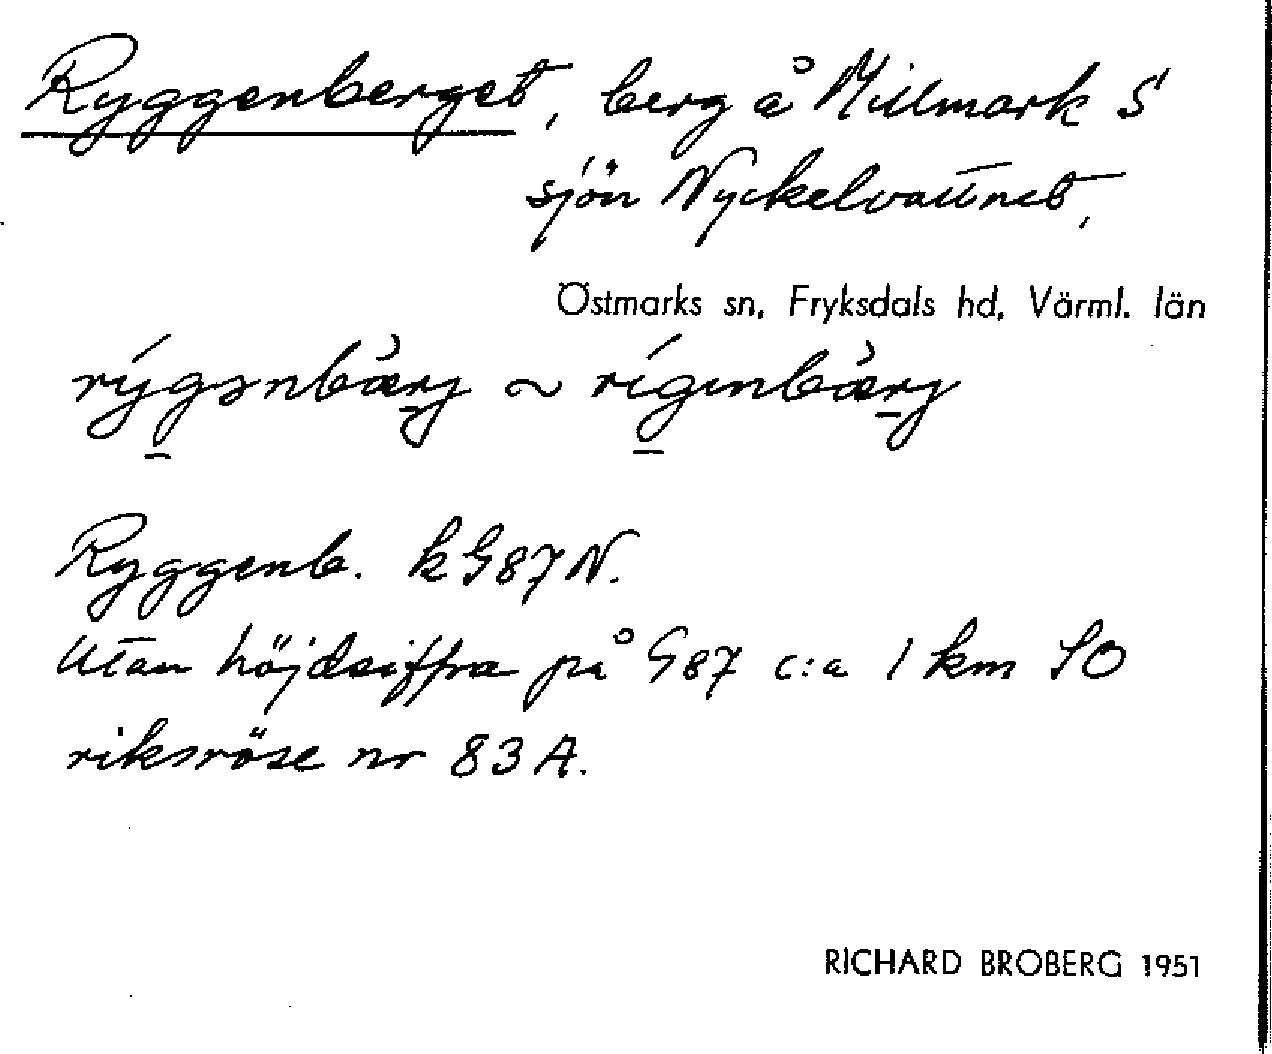 Ryggenberget, berg å Millmark S
sjön Nyckelvattnet,
Östmarks sn, Fryksdals hd, Värml. län
rýgənbær̲j ~ rígɪnbær̲j
Ryggenb. k G87 N.
Utan höjdsiffra på G87 c:a 1 km SO
riksröse nr 83 A.
RICHARD BROBERG 1951